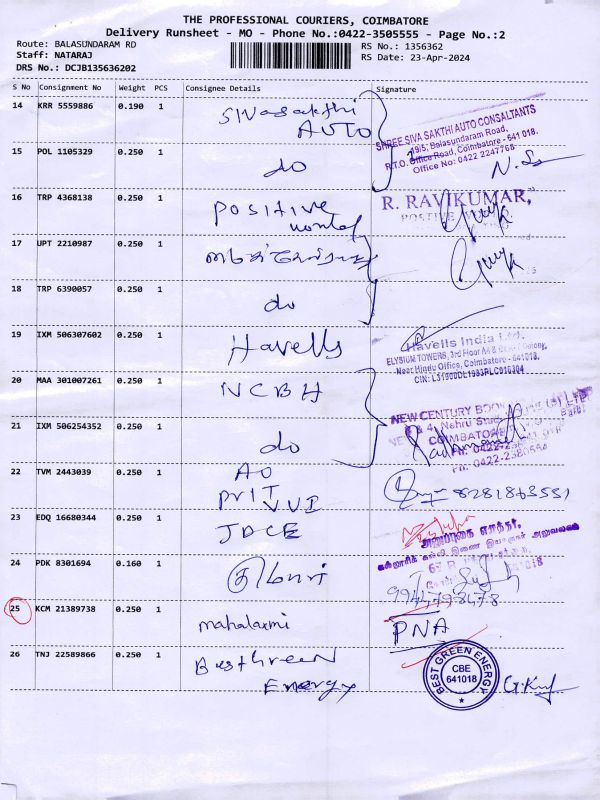 THE PROFESSIONAL COURIERS, COIMBATORE
Delivery Runsheet - MO - Phone No.:0422-3505555 - Page No.:2
Route: BALASUNDARAM RD RS No.: 1356362
Staff: NATARAJ RS Date: 23-Apr-2024
DRS No.: DCJB135636202
S No Consignment No Weight PCS Consignee Details Signature
14 KRR 5559886 0.190 1 Sivasakthi
AUTO
SHREE SIVA SAKTHI AUTO CONSALTANTS
19/5, Balasundaram Road,
R.T.O. Office Road, Coimbatore - 641 018.
Office No: 0422 2247768
15 POL 1105329 0.250 1 do
16 TRP 4368138 0.250 1 Positive
R. RAVIKUMAR,
17 UPT 2210987 0.250 1
18 TRP 6390057 0.250 1 do
19 IXM 506307602 0.250 1 Havells
Havells India Ltd.
ELYSIUM TOWERS, 3rd Floor
Near Hindu Office, Coimbatore - 641018.
CIN: L31900DL1983PLC016304
20 MAA 301007261 0.250 1 NCBH
NEW CENTURY BOOK
COIMBATORE
21 IXM 506254352 0.250 1 do
22 TVM 2443039 0.250 1 AO
PVIT
VVI 8281863551
23 EDQ 16680344 0.250 1 JDCE
24 PDK 8301694 0.160 1 குமார்
9944798478
25 KCM 21389738 0.250 1 mahalaxmi PNA
26 TNJ 22589866 0.250 1 Bestgreen
Energy
BEST GREEN ENERGY
CBE
641018